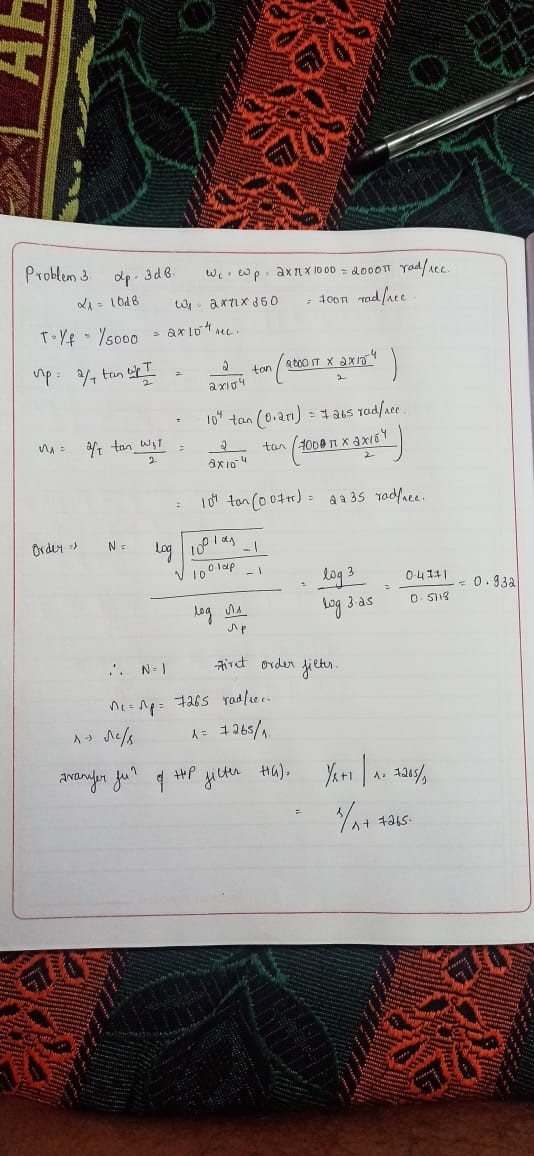 AH
Problem 3. αp = 3dB. ωc = ωp = 2×π×1000 = 2000π rad/sec.
αs = 10dB ωs = 2×π×350 = 700π rad/sec
T = 1/f = 1/5000 = 2×10⁻⁴ sec.
Ωp = 2/T tan ωpT/2 = 2/2×10⁻⁴ tan (2000π × 2×10⁻⁴/2)
= 10⁴ tan (0.2π) = 7265 rad/sec.
Ωs = 2/T tan ωsT/2 = 2/2×10⁻⁴ tan (700π × 2×10⁻⁴/2)
= 10⁴ tan (0.07π) = 2235 rad/sec.
Order ⇒ N = log √(10^0.1αs − 1 / 10^0.1αp − 1) / log Ωs/Ωp = log 3/log 3.25 = 0.4771/0.5118 = 0.932
∴ N = 1 First order filter.
Ωc = Ωp = 7265 rad/sec.
s → Ωc/s s = 7265/s
Transfer fuⁿ of HP filter H(s) = 1/s+1 | s = 7265/s
= s/s + 7265.